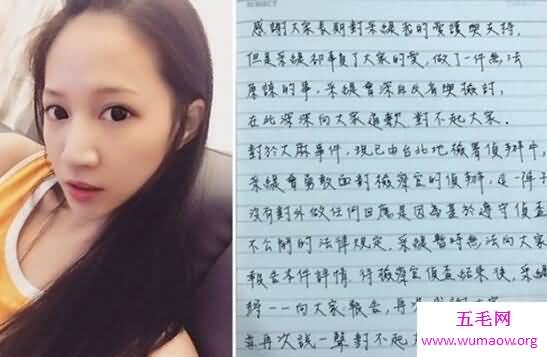 感謝大家長期對采緹我的愛護與支持,
但是采緹卻辜負了大家的愛, 做了一件無法
原諒的事, 采緹會深自反省與檢討,
在此深深向大家道歉 對不起大家.
對於大麻事件, 現已由台北地檢署偵辦中,
采緹會勇敢面對檢察官的偵辦, 這一陣子
沒有對外做任何回應是因為基於遵守偵查
不公開的法律規定, 采緹暫時無法向大家
報告本件詳情. 待檢察官偵查結束後, 采緹
將一一向大家報告, 再次
再次說一聲對不起
五毛网
www.wumaow.org